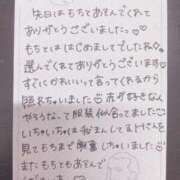 先日はもちとあそんでくれて
ありがとうございました
もちとははじめましてでしたね
選んでくれてありがとうございます
すぐにかわいいって言ってくれるから
照れちゃいました
好きなん
やろうなって服装似合ってました
いちゃいちゃは
見てもちまで興奮しちゃいました
またもちともあそんで